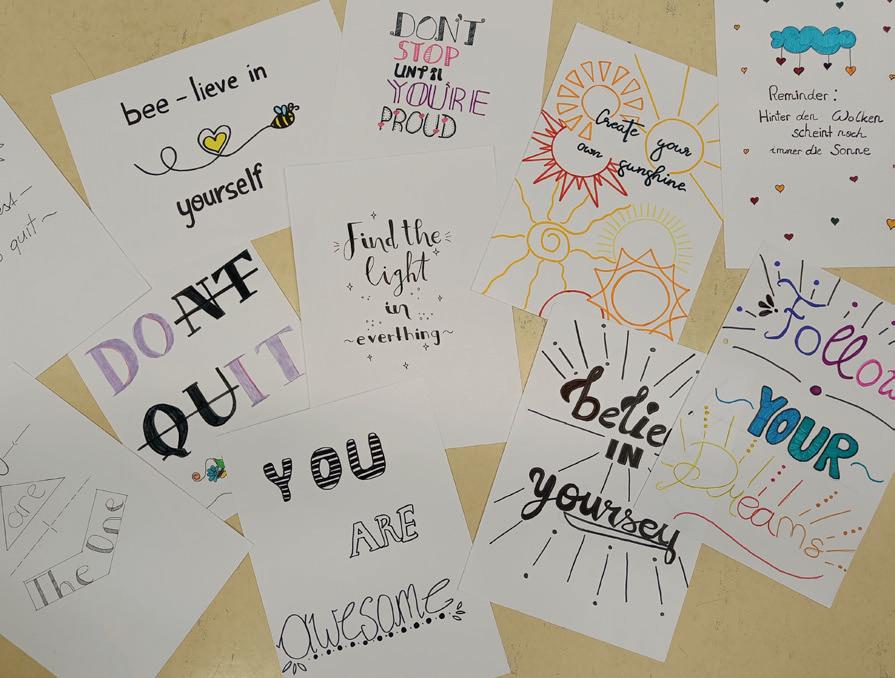 bee-lieve in
yourself
DON'T
STOP
UNTIL
YOU'RE
PROUD
Create your
own sunshine
Reminder:
Hinter den Wolken
scheint noch
immer die Sonne
quit~
DONT
QUIT
Find the
light
in
~everthing~
are
The One
YOU
ARE
awesome
belie
IN
yourself
Follow
YOUR
Dreams